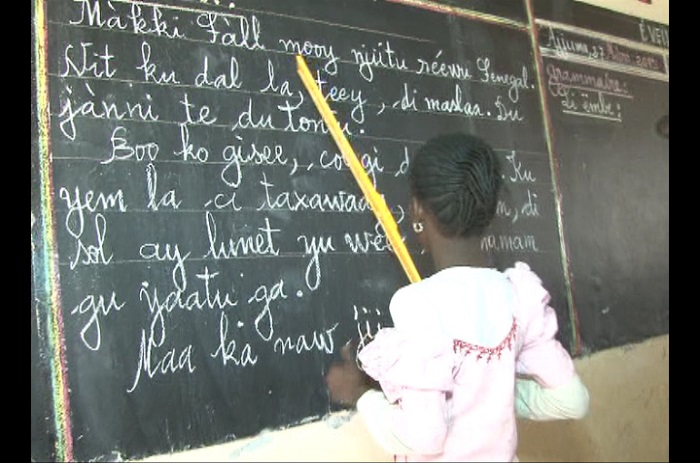 Màkki Fàll mooy njiitu réewu Senegal.
Nit ku dal la, teey, di maslaa. Du
jànni te du tontu.
Boo ko gisee, Ku
yem la ci taxawaay, di
sol ay lunet yu
gu yaatu ga.
Maa ka naw
ÉVEIL
Àjjuma, 27
grammaire:
Li ëmbe: